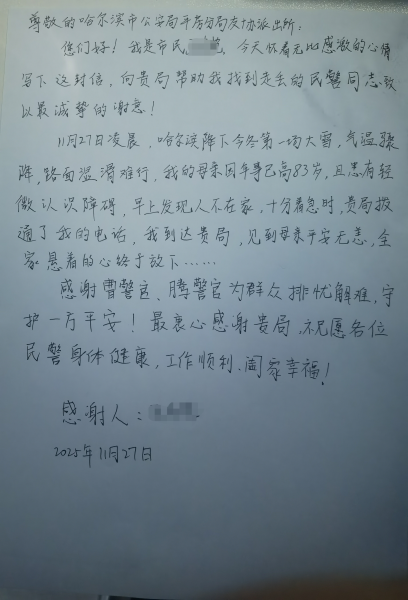 尊敬的哈尔滨市公安局平房分局友协派出所:
您们好!我是市民 今天怀着无比感激的心情
写下这封信,向贵局帮助我找到走丢的民警同志致
以最诚挚的谢意!
11月27日凌晨,哈尔滨降下今冬第一场大雪,气温骤
降,路面湿滑难行,我的母亲因年事已高83岁,且患有轻
微认识障碍,早上发现人不在家,十分着急时,贵局拨
通了我的电话,我到达贵局,见到母亲平安无恙,全
家悬着的心终于放下……
感谢曹警官、腾警官为群众排忧解难,守
护一方平安!最衷心感谢贵局,祝愿各位
民警身体健康,工作顺利,阖家幸福!
感谢人:
2025年11月27日